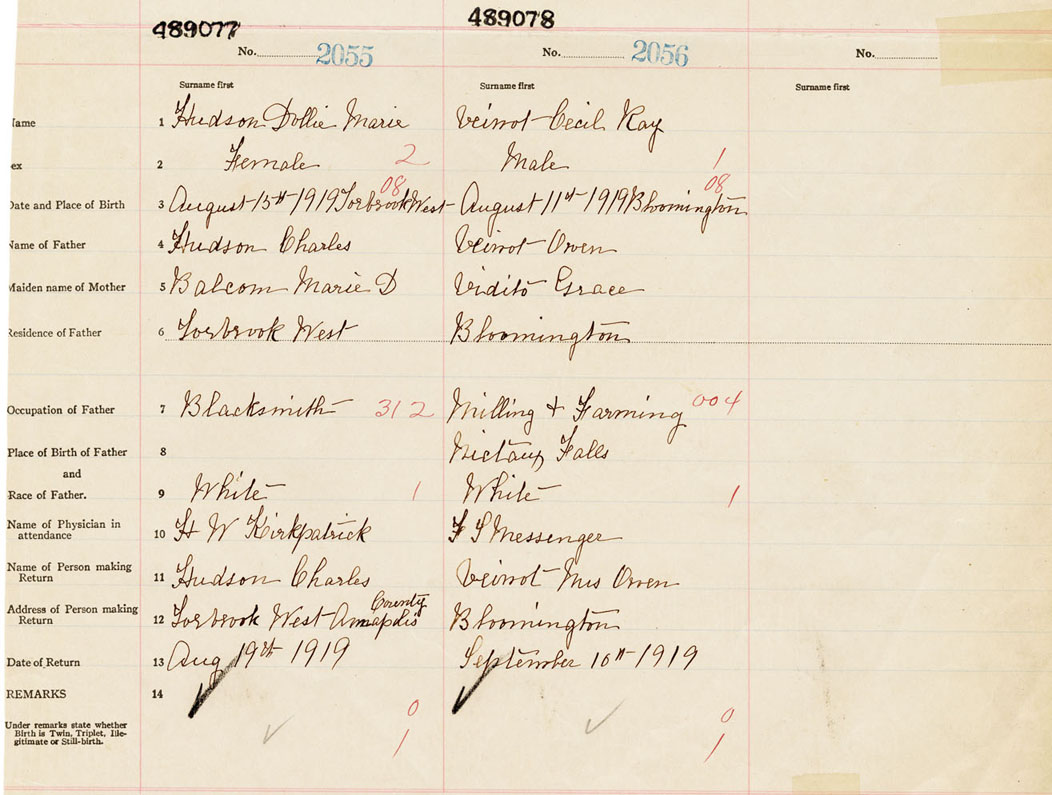 489077 489078
No. 2055 No. 2056 No.
Surname first Surname first Surname first
Name 1 Hudson Dollie Marie Veinot Cecil Ray
Sex 2 Female 2 Male 1
08 08
Date and Place of Birth 3 August 15th 1919 Torbrook West August 11st 1919 Bloomington
Name of Father 4 Hudson Charles Veinot Owen
Maiden name of Mother 5 Balcom Marie D Vidito Grace
Residence of Father 6 Torbrook West Bloomington
Occupation of Father 7 Blacksmith 312 Milling + Farming 004
Place of Birth of Father 8 Nictaux Falls
and
Race of Father. 9 White 1 White 1
Name of Physician in
attendance 10 H W Kirkpatrick F S Messenger
Name of Person making
Return 11 Hudson Charles Veinot Mrs Owen
County
Address of Person making
Return 12 Torbrook West Annapolis Bloomington
Date of Return 13 Aug 19th 1919 September 10th 1919
REMARKS 14
0 0
Under remarks state whether
Birth is Twin, Triplet, Ille-
gitimate or Still-birth. 1 1